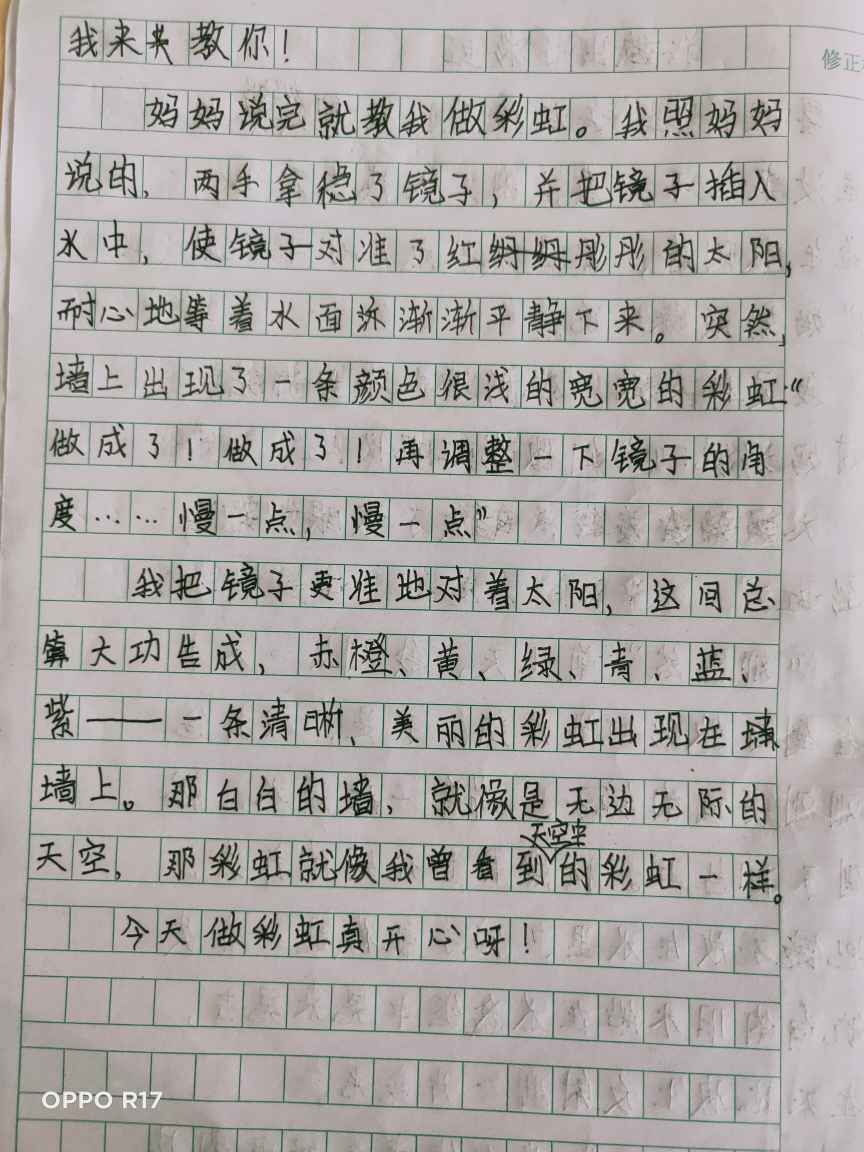 我来教你！
修正
妈妈说完就教我做彩虹。我照妈妈
说的，两手拿稳了镜子，并把镜子插入
水中，使镜子对准了红彤彤的太阳，
耐心地等着水面渐渐平静下来。突然，
墙上出现了一条颜色很浅的宽宽的彩虹“
做成了！做成了！再调整一下镜子的角
度……慢一点，慢一点”
我把镜子更准地对着太阳，这间总
算大功告成，赤橙、黄、绿、青、蓝、
紫——一条清晰、美丽的彩虹出现在
墙上。那白白的墙，就像是无边无际的
天空，那彩虹就像我曾看到天空的彩虹一样。
今天做彩虹真开心呀！
OPPO R17